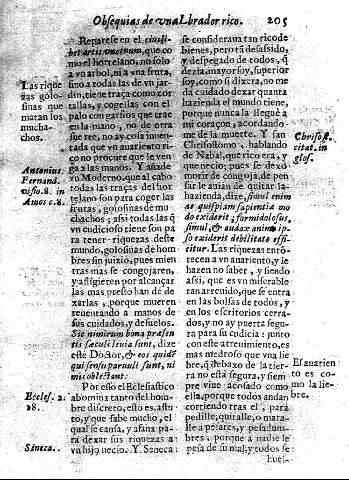 Obsequias de un Labrador rico. 205
Reparese en el cuiusli-
bet artis vncinum, que co-
mo el hortelano, no solo
a vn arbol, ni a vna fruta,
sino a todas las de vn jar-
din, tiene traça como cor-
tallas, y cogellas con el
palo con garfios que trae
en la mano, no de otra
suerte, no ay cosa inten-
tada que vn auariento ri-
co no procure que le ven-
ga a las manos. Y añade
vn Moderno, que al cabo
todas las traças del hor-
telano son para coger las
frutas, golosinas de mu-
chachos; assi todas las q̃
vn cudicioso tiene son pa
ra tener riquezas deste
mundo, golosinas de hom-
bres sin juizio, pues mien
tras mas se congojaren,
y afligieren por alcançar
las mas presto han de de-
xarlas, porque mueren
rebentando a manos de
sus cuidados, y desuelos.
Sic nimirum bona præsen-
tis sæculi leuia sunt, dize
este Doctor, & eos quidē
qui sensu paruuli sunt, ni
mis oblectant.
Por esso el Eclesiastico
abomina tanto del hom-
bre discreto, esto es, astu-
to, y que sabe mucho, el
qual se cansa, y afana pa-
ra dexar sus riquezas a
vn hijo necio. Y Seneca
Las rique
zas golo-
sinas que
matan los
mucha-
chos.
Antonius
Fernand.
viso.8. in
Amos c.8.
Eccles. 2.
18.
Seneca.
se consideraua tan rico de
bienes, pero tā desasido,
y despegado de todos, q̃
dezia, mayor soy, superior
soy, como si dixera, no me
da cuidado dexar quanta
hazienda el mundo tiene,
porque nunca la lleguè a
mi coraçon, acordando-
me de la muerte. Y san
Chrisostomo, hablando
de Nabal, que rico era, y
que necio; pues se dexò
morir de congoja, de pen-
sar le auian de quitar la
hazienda, dize, simul enim
ac quispiam sapientia mo
do exiderit; formidolosus,
simul, & audax animi ip-
so exiderit debilitate effi-
citur. Las riquezas enrō-
recen a vn auariento, y le
hazen no saber, y siendo
assi, que es vn miserable
tan atreuido, que se entra
en las bolsas de todos, y
en los escritorios cerra-
dos, y no ay puerta segu-
ra para su cudicia: miro
con este atreuimiento, es
mas medroso que vna lie
bre, q̃ debaxo de la tier-
ra no està segura, y siem-
pre viue acosado como
ella, porque todos andan
corriendo tras el, para
pedille, quitalle, o matar-
alle a pesares, y pesadum-
bres, porque a nadie le
pesa de su mal, y todos se
Chrisost.
citat. in
glos.
Es auarien
to es co-
mo la lie-
bre.